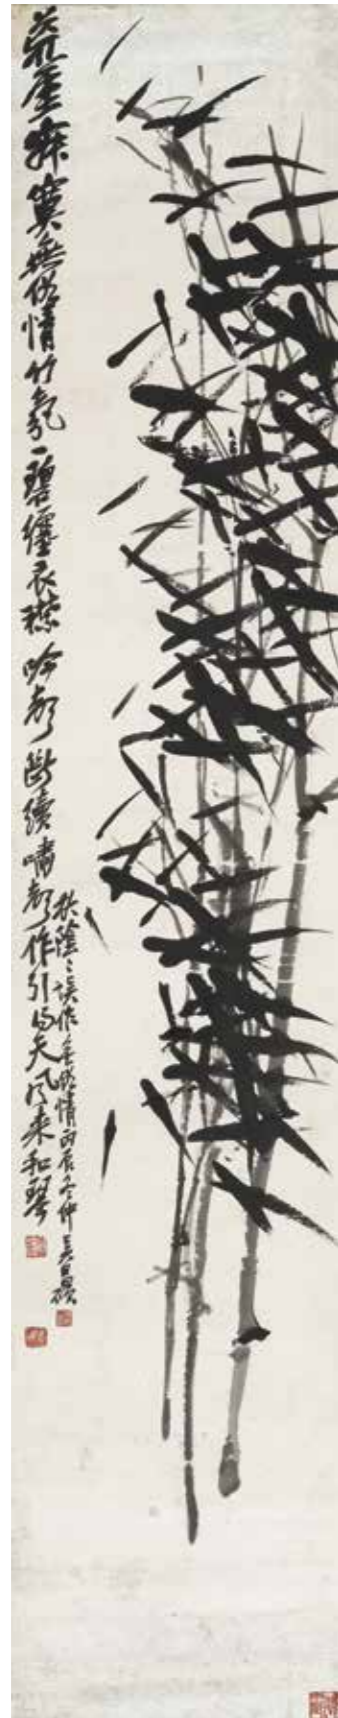 荒崖寂寞無俗情竹氣一碧纏衣襟吟聲斷續嘯聲作引得天風來和琴
秋陰〻誤作無俗情丙辰冬仲吳昌碩